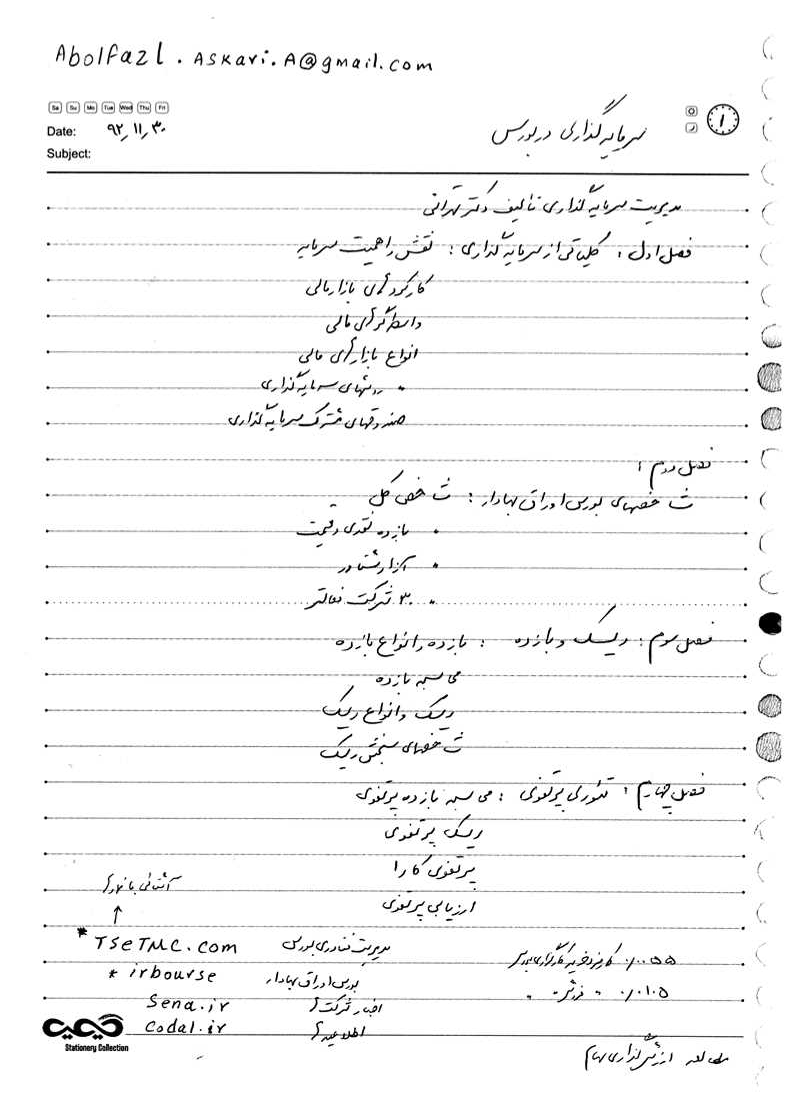 Abolfazl.Askari.A@gmail.com
Sa Su Mo Tue Wed Thu Fri
Date: ۹۲/۱۱/۳۰
سرمایه گذاری در بورس
۱
Subject:
مدیریت سرمایه گذاری تالیف دکتر تهرانی
فصل اول : کلیاتی از سرمایه گذاری : نقش و اهمیت سرمایه
کارکردهای بازار مالی
واسطه گرهای مالی
انواع بازارهای مالی
روشهای سرمایه گذاری
صندوقهای مشترک سرمایه گذاری
فصل دوم :
شاخصهای بورس اوراق بهادار : شاخص کل
بازده نقدی و قیمت
آزاد شناور
۳۰ شرکت فعالتر
فصل سوم : ریسک و بازده : بازده و انواع بازده
محاسبه بازده
ریسک و انواع ریسک
شاخصهای سنجش ریسک
فصل چهارم : تئوری پرتفوی : محاسبه بازده پرتفوی
ریسک پرتفوی
پرتفوی کارا
ارزیابی پرتفوی
آشنائی با نمادها
↑
* TseTMC.com مدیریت فناوری بورس
٪۰.۰۰۵۵ کارمزد خرید کارگزاری بورس
* irbourse بورس اوراق بهادار
٪۰.۱۰۵ " فروش " "
Sena.ir اخبار شرکت ها
Codal.ir اطلاعیه ها
Stationery Collection
مطالعه ارزش گذاری سهام